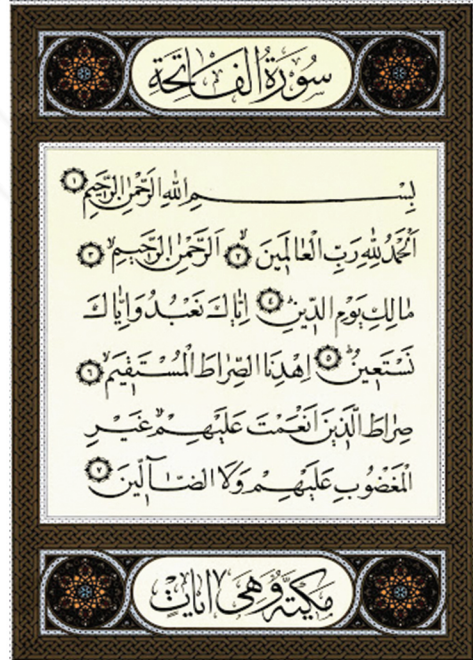 سُورَةُ الْفَاتِحَةِ
بِسْمِ اللهِ الرَّحْمٰنِ الرَّحِيمِ ١
اَلْحَمْدُ لِلّٰهِ رَبِّ الْعَالَمِينَۙ ٢ اَلرَّحْمٰنِ الرَّحِيمِۙ ٣
مَالِكِ يَوْمِ الدِّينِۜ ٤ اِيَّاكَ نَعْبُدُ وَاِيَّاكَ
نَسْتَعِينُۜ ٥ اِهْدِنَا الصِّرَاطَ الْمُسْتَقِيمَۙ ٦
صِرَاطَ الَّذِينَ اَنْعَمْتَ عَلَيْهِمْۙ غَيْرِ
الْمَغْضُوبِ عَلَيْهِمْ وَلَا الضَّٓالِّينَ ٧
مَكِّيَّةٌ وَهِيَ ٧ اٰيَاتٍ